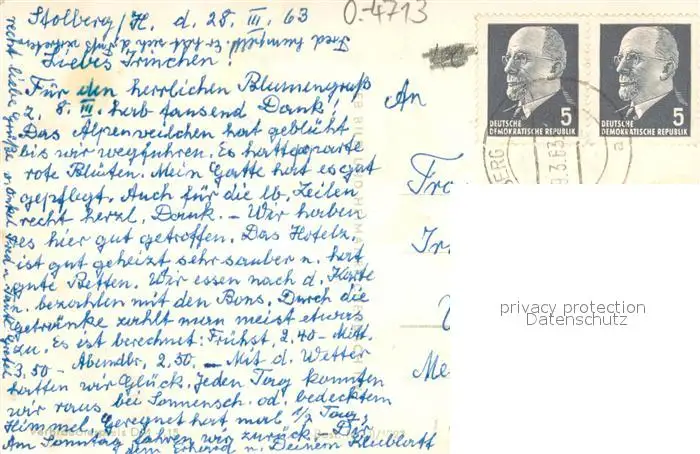 Stolberg/H. d. 28. III. 63
0-4713
Liebes Irmchen!
Für den herrlichen Blumengruß
z. 8. III. hab tausend Dank!
Das Alpenveilchen hat geblüht
bis wir wegfuhren. Es hatte aparte
rote Blüten. Mein Gatte hat es gut
gepflegt. Auch für die lb. Zeilen
recht herzl. Dank. - Wir haben
es hier gut getroffen. Das Hotelz.
ist gut geheizt sehr sauber u. hat
gute Betten. Wir essen nach d. Karte
u. bezahlen mit den Bons. Durch die
Getränke zahlt man meist etwas
zu. Es ist berechnet: Frühst. 2,40 - Mitt.
3,50 - Abendbr. 2,50. - Mit d. Wetter
hatten wir Glück. Jeden Tag konnten
wir raus bei Sonnensch. od. bedecktem
Himmel. Geregnet hat mal 1/2 Tag.
Am Sonntag fahren wir zurück. - Dir
dem Erhard u. Deinem Kleeblatt
recht liebe Grüße v. Onkel Fred u. Tante Gretel
An
Me
5
DEUTSCHE
DEMOKRATISCHE REPUBLIK
5
DEUTSCHE
DEMOKRATISCHE REPUBLIK
BERG
9.3.63
a
privacy protection
Datenschutz